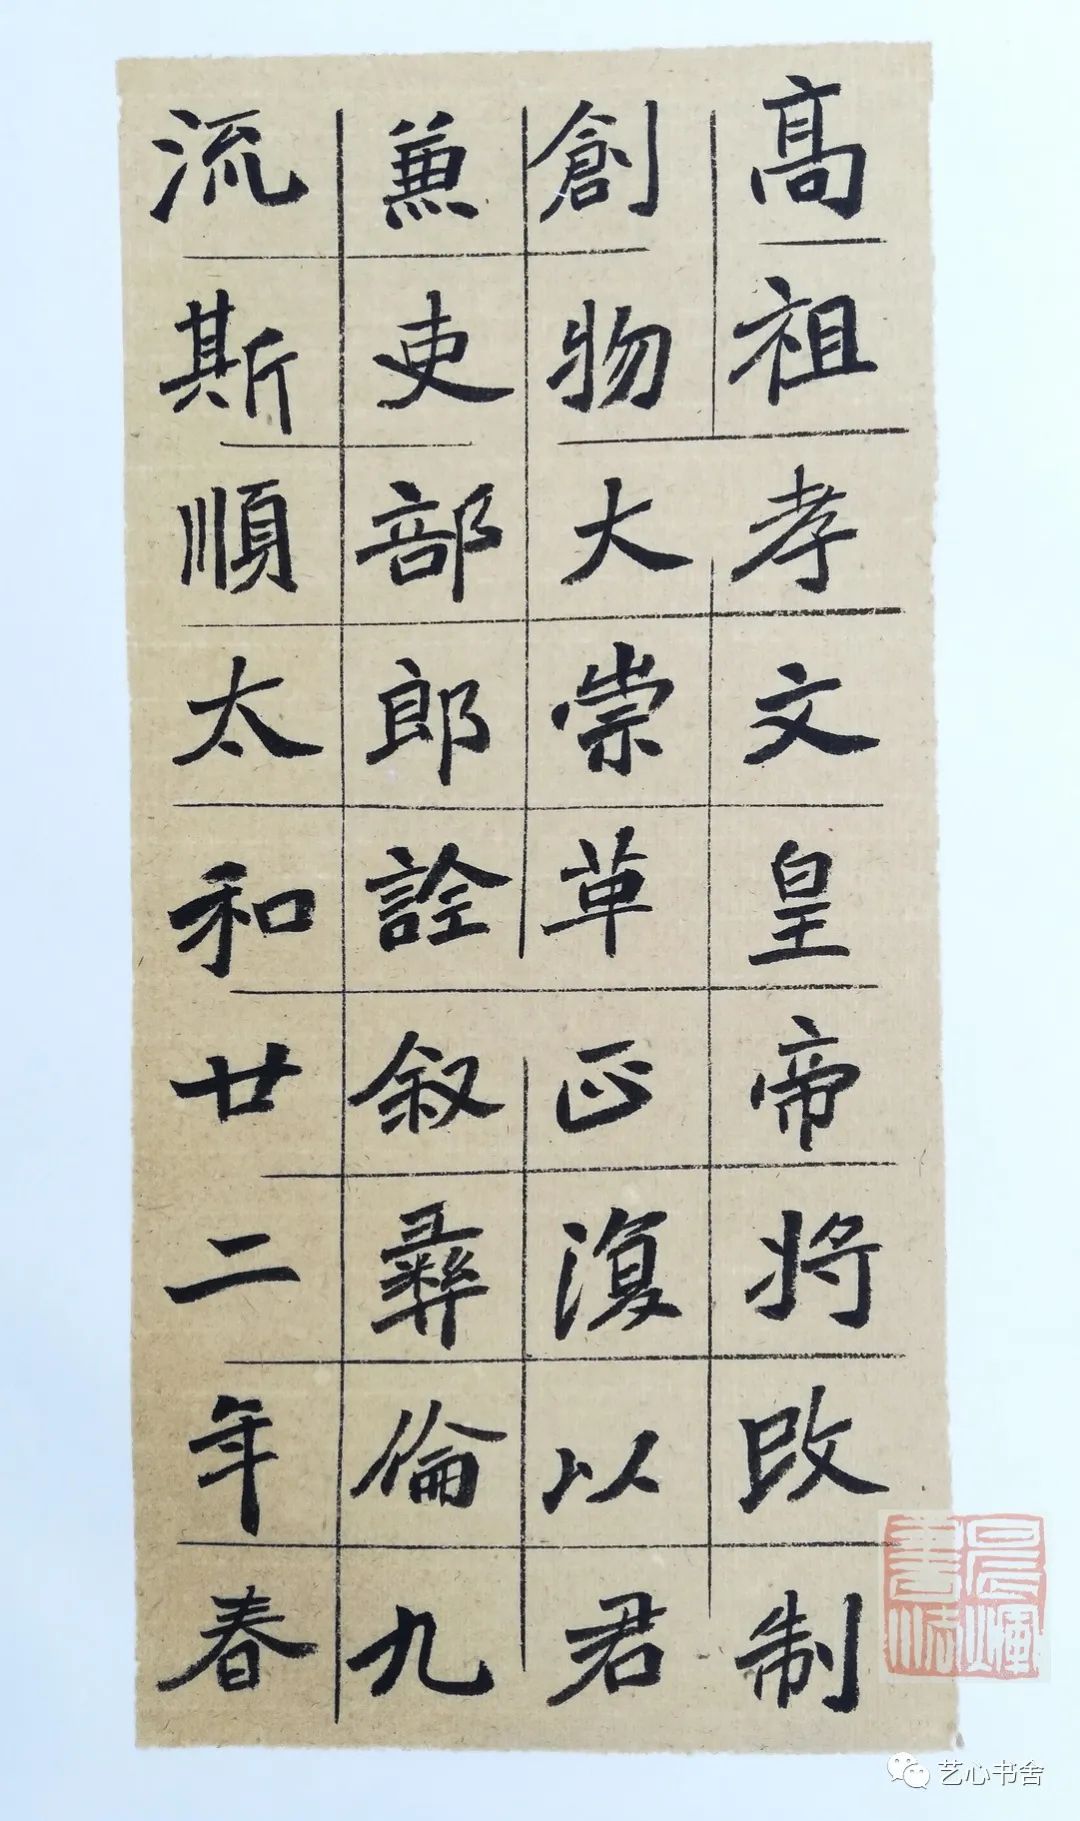 高祖孝文皇帝將改制
創物大崇革正復以君
兼吏部郎詮叙彝倫九
流斯順太和廿二年春
艺心书舍